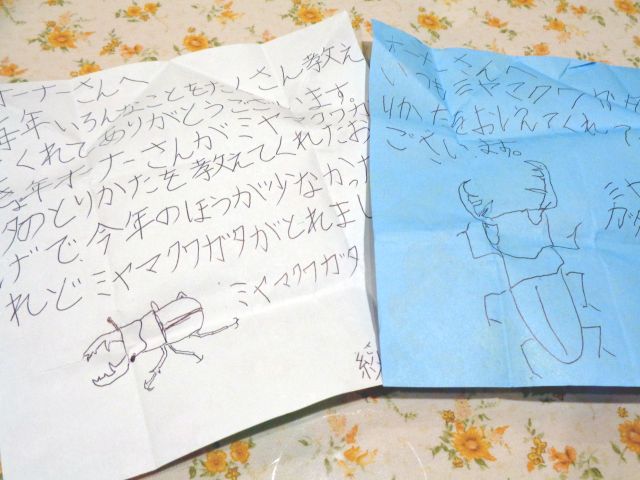 オーナーさんへ
毎年いろんなことをたくさん教え
てくれてありがとうございます。
きょ年オーナーさんがミヤマクワガ
タのとりかたを教えてくれたお
げで、今年のほうが少なかった
れどミヤマクワガタがとれまし
ミヤマクワガタ
オーナーさんへ
いつもミヤマクワガタの
りかたをおしえてくれて
ございます。
ミヤ
ガ